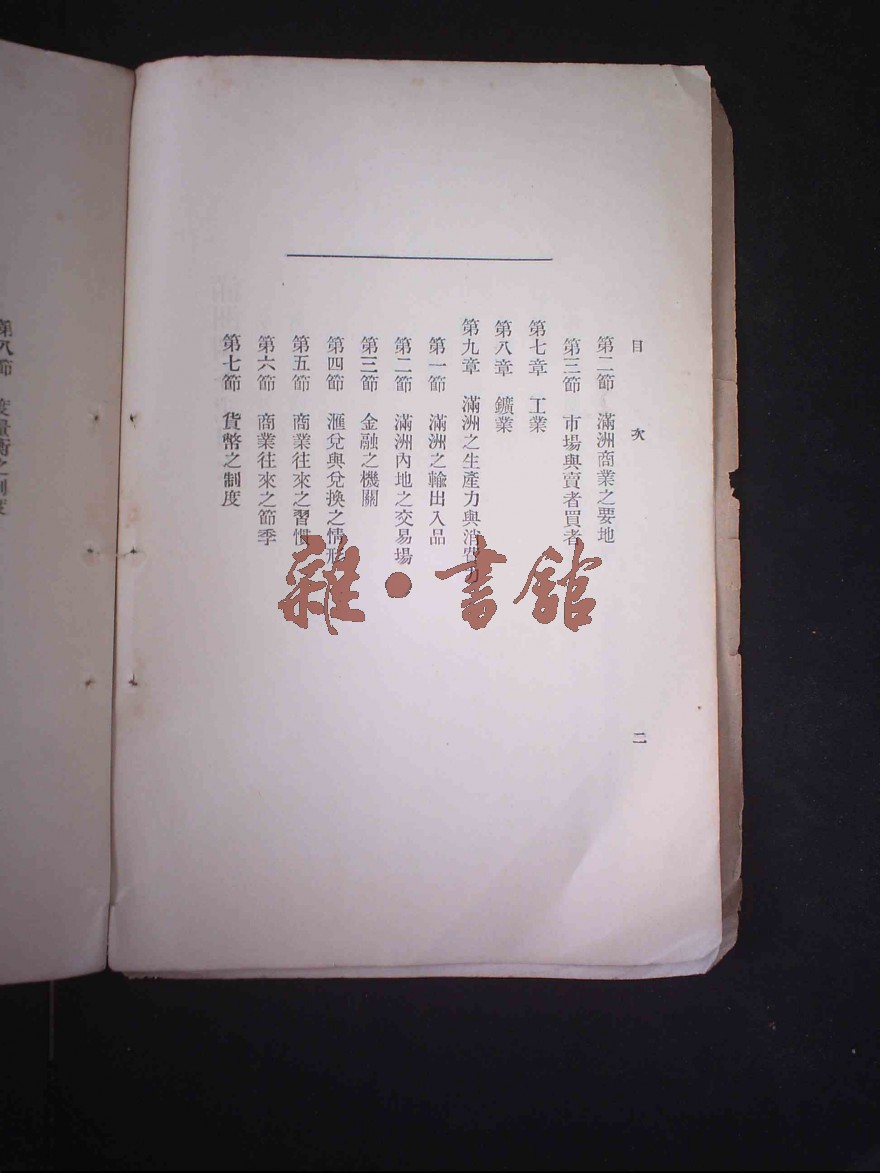 目次
二
第二節 滿洲商業之要地
第三節 市場與賣者買者
第七章 工業
第八章 鑛業
第九章 滿洲之生產力與消費力
第一節 滿洲之輸出入品
第二節 滿洲內地之交易場
第三節 金融之機關
第四節 滙兌與兌換之情形
第五節 商業往來之習慣
第六節 商業往來之節季
第七節 貨幣之制度
第八節 度量衡之制度
雜·書館